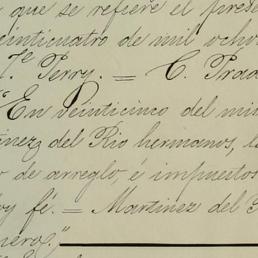 que se refiere el prese
einticuatro de mil ocho
Perry. = C. Prad
"En veinticinco del mis
inez del Rio hermanos, l
o de arreglo, é impuestos
oy fé. = Martinez del
nero."